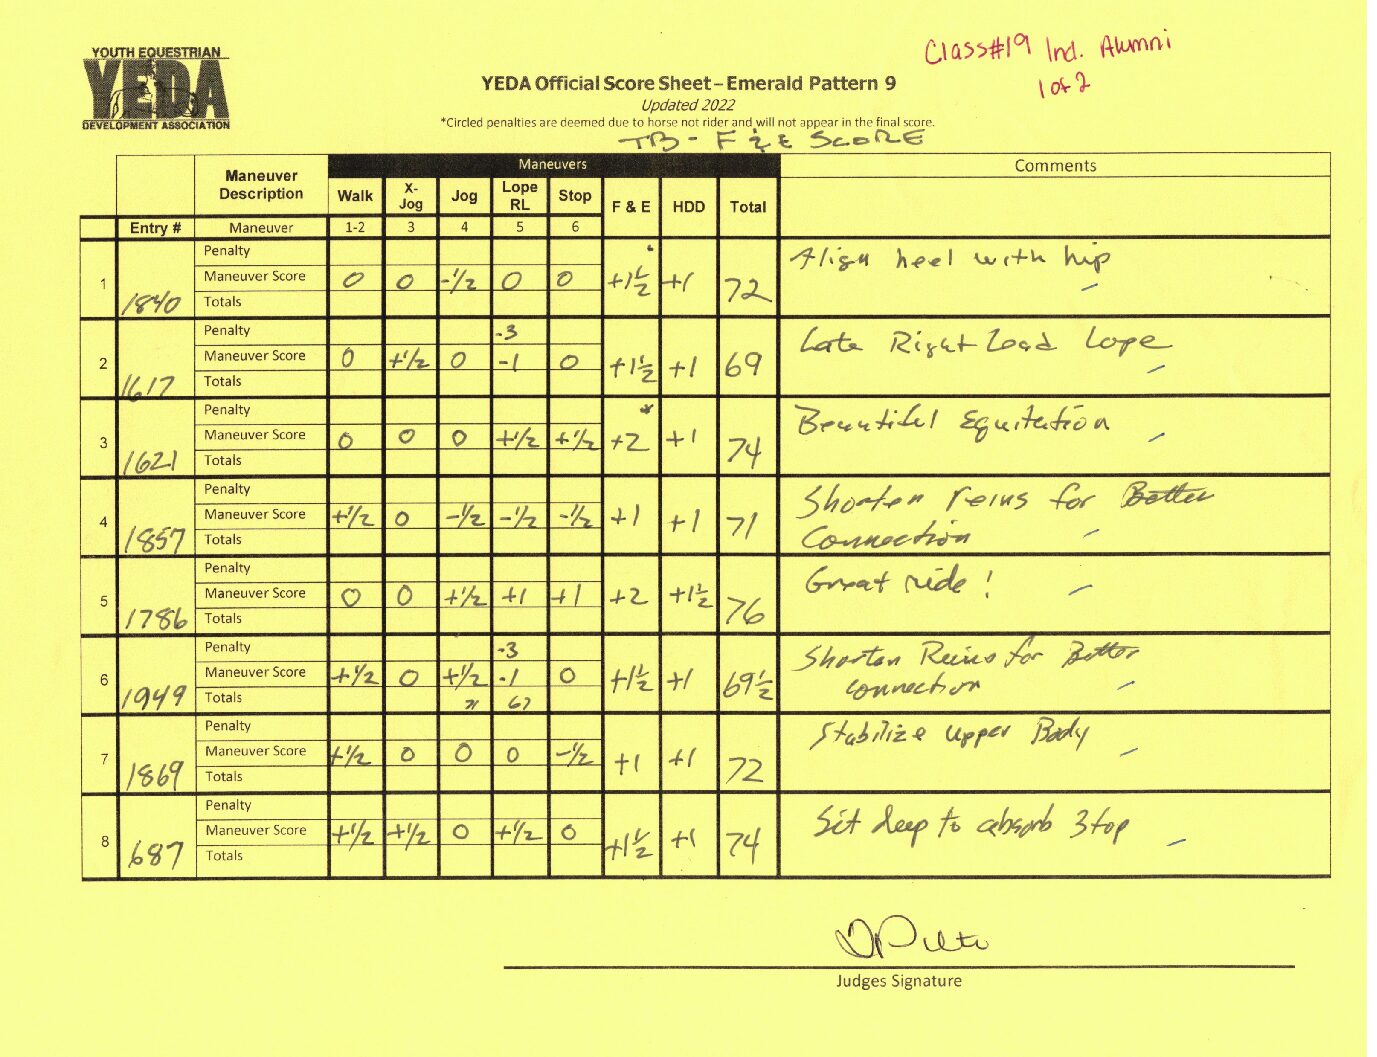 Class#19 Ind. Alumni
1 of 2
YOUTH EQUESTRIAN
YEDA
DEVELOPMENT ASSOCIATION
YEDA Official Score Sheet – Emerald Pattern 9
Updated 2022
*Circled penalties are deemed due to horse not rider and will not appear in the final score.
TB - F & E SCORE
Maneuver Description Maneuvers Comments
Walk X-Jog Jog Lope RL Stop F & E HDD Total
Entry # Maneuver 1-2 3 4 5 6
Penalty
1 1840 Maneuver Score 0 0 -1/2 0 0 +1 1/2 +1 72 Align heel with hip
Totals
Penalty -3
2 1617 Maneuver Score 0 +1/2 0 -1 0 +1 1/2 +1 69 Late Right Lead Lope
Totals
Penalty *
3 1621 Maneuver Score 0 0 0 +1/2 +1/2 +2 +1 74 Beautiful Equitation
Totals
Penalty
4 1857 Maneuver Score +1/2 0 -1/2 -1/2 -1/2 +1 +1 71 Shorten reins for Better
Totals Connection
Penalty
5 1786 Maneuver Score 0 0 +1/2 +1 +1 +2 +1 1/2 76 Great ride!
Totals
Penalty -3
6 1949 Maneuver Score +1/2 0 +1/2 -1 0 +1 1/2 +1 69 1/2 Shorten Reins for Better
Totals 71 67 connection
Penalty
7 1869 Maneuver Score +1/2 0 0 0 -1/2 +1 +1 72 Stabilize upper Body
Totals
Penalty
8 687 Maneuver Score +1/2 +1/2 0 +1/2 0 +1 1/2 +1 74 Sit deep to absorb stop
Totals
Judges Signature